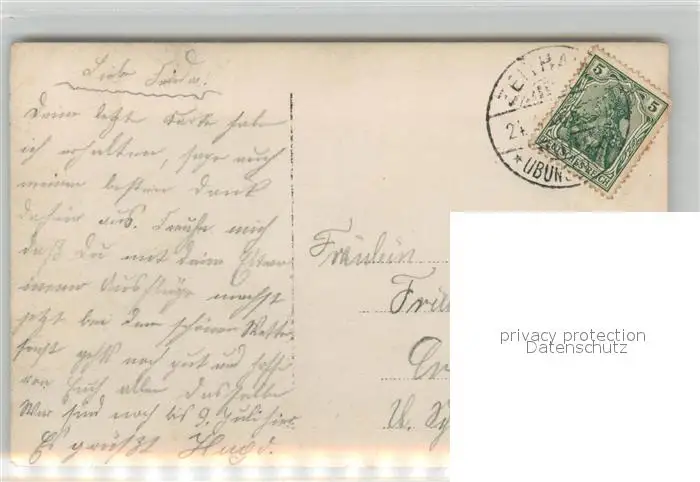 Liebe Frieda.
Deine letzte Karte habe
ich erhalten, sage auch
meinen besten Dank
dafür aus. Freuhe mich
daß Du mit deine Eltern
immer Ausflüge machst
jetzt bei dem schönen Wetter
geht noch gut und hoffe
von Euch allen dasselbe
Wir sind noch bis 9. Juli hier.
Es grüßt
Fräulein
5 5
ÜBUNGS
privacy protection
Datenschutz